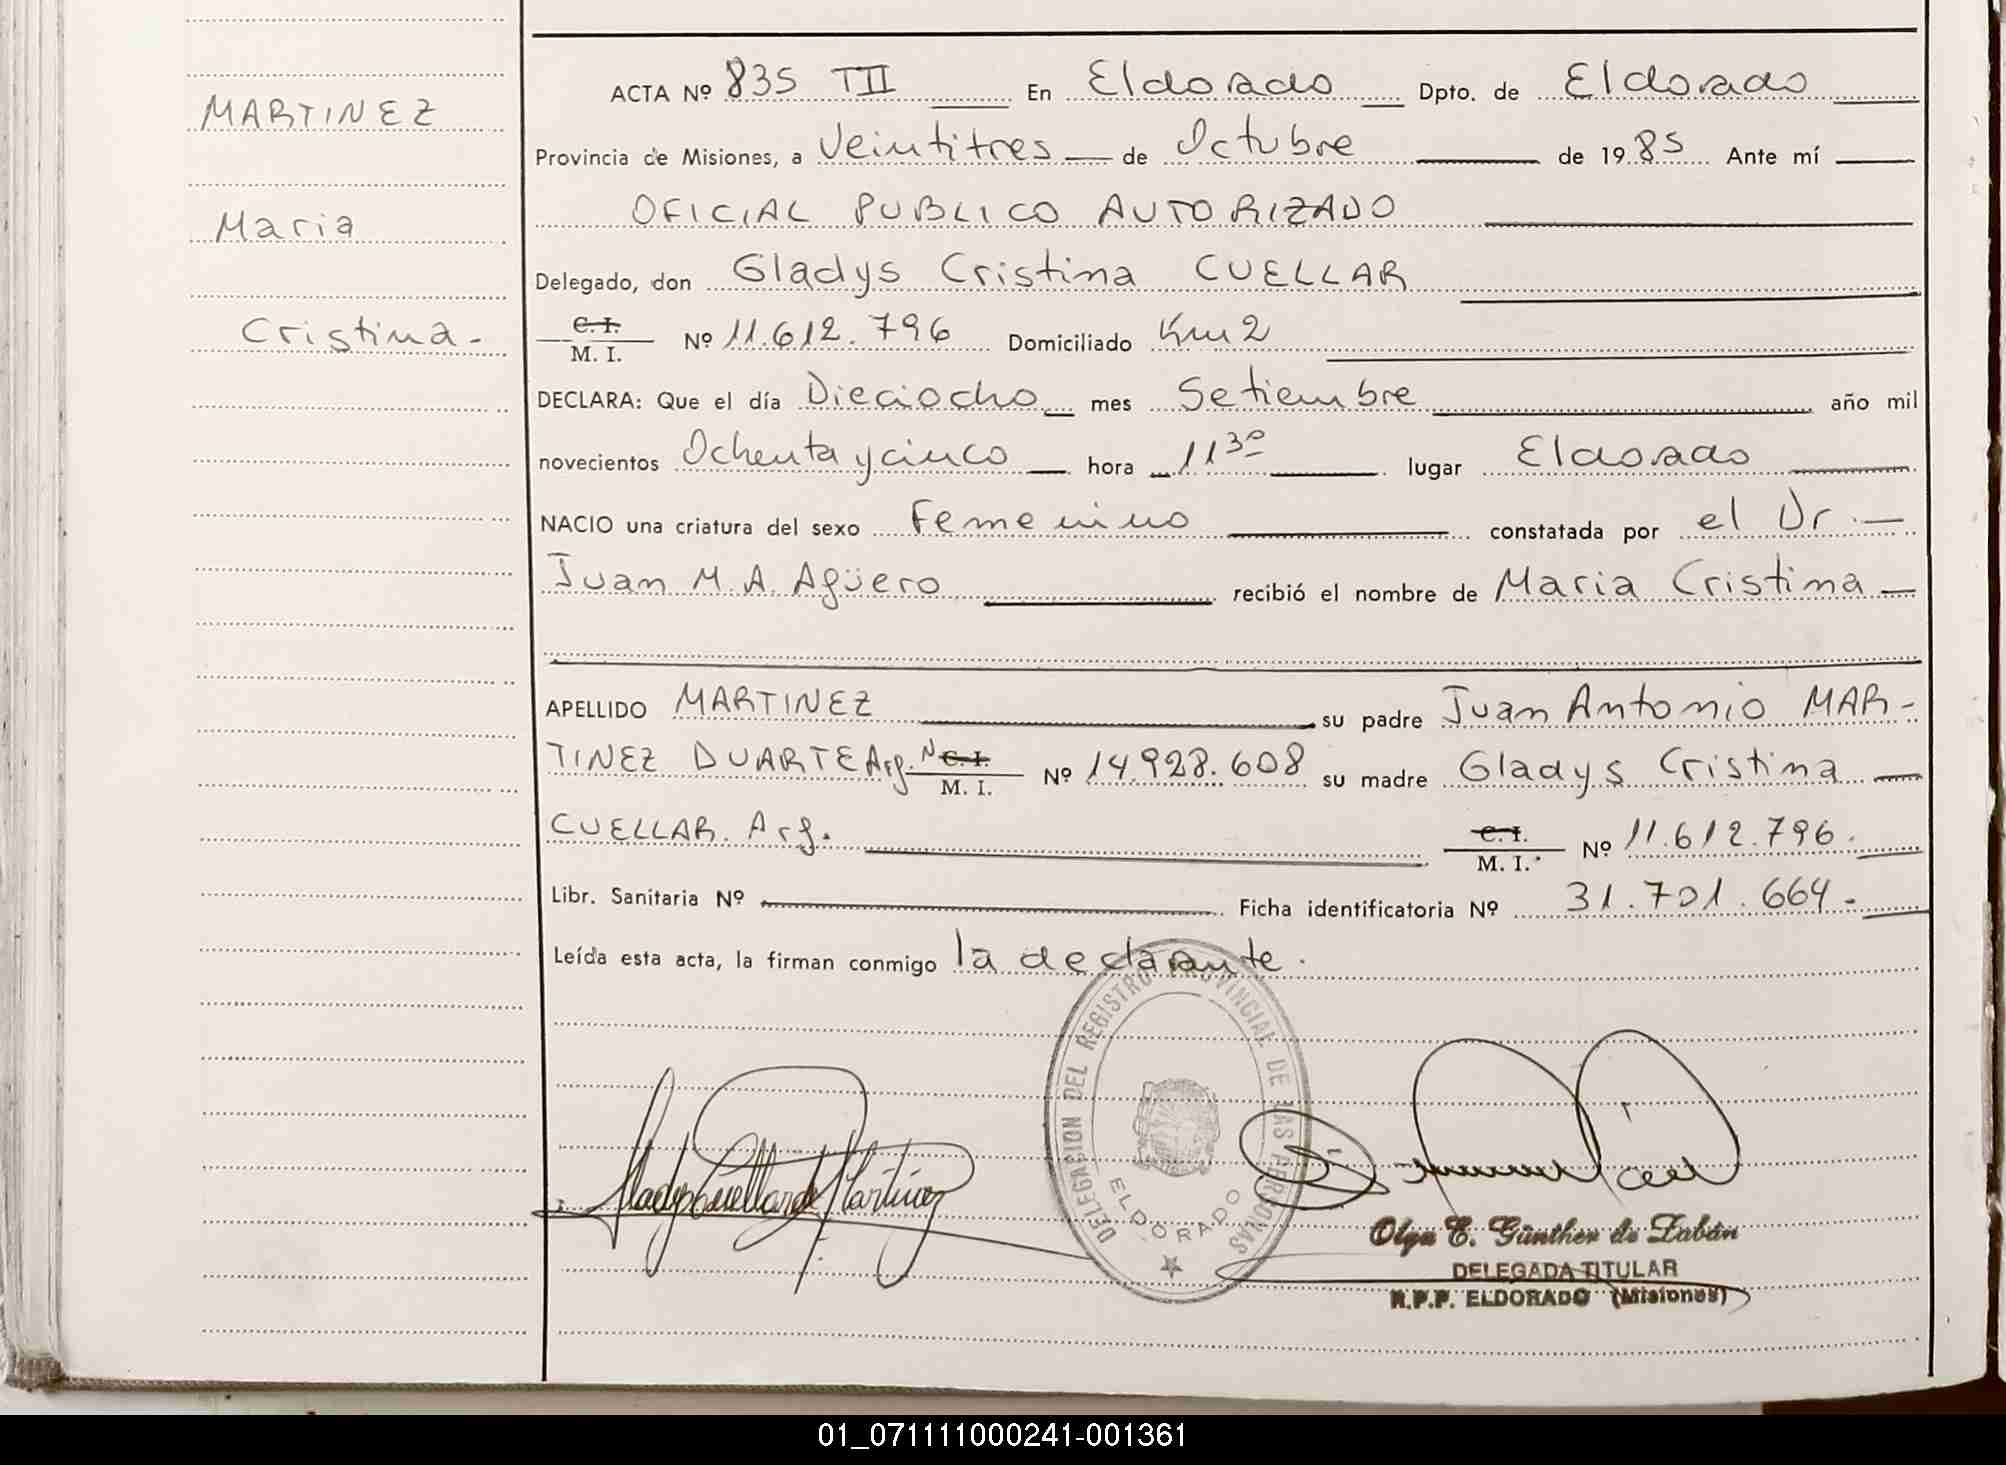 MARTINEZ
Maria
Cristina -
ACTA Nº 835 TII En Eldorado Dpto. de Eldorado
Provincia de Misiones, a Veintitres de Octubre de 1985 Ante mí
OFICIAL PUBLICO AUTORIZADO
Delegado, don Gladys Cristina CUELLAR
C. I.
M. I. Nº 11.612.796 Domiciliado Km 2
DECLARA: Que el día Dieciocho mes Setiembre año mil
novecientos Ochenta y cinco hora 11 30 lugar Eldorado
NACIO una criatura del sexo Femenino constatada por el Dr.
Juan M. A. Agüero recibió el nombre de Maria Cristina
APELLIDO MARTINEZ su padre Juan Antonio MAR-
TINEZ DUARTE Arg. N C. I.
M. I. Nº 14.928.608 su madre Gladys Cristina
CUELLAR. Arg. C. I.
M. I. Nº 11.612.796.
Libr. Sanitaria Nº Ficha identificatoria Nº 31.701.664-
Leída esta acta, la firman conmigo la declarante.
DELEGACION DEL REGISTRO PROVINCIAL DE LAS PERSONAS
ELDORADO
Gladys Cuellar de Martinez
Olga E. Günther de Zabán
DELEGADA TITULAR
R.P.P. ELDORADO (Misiones)
01_071111000241-001361